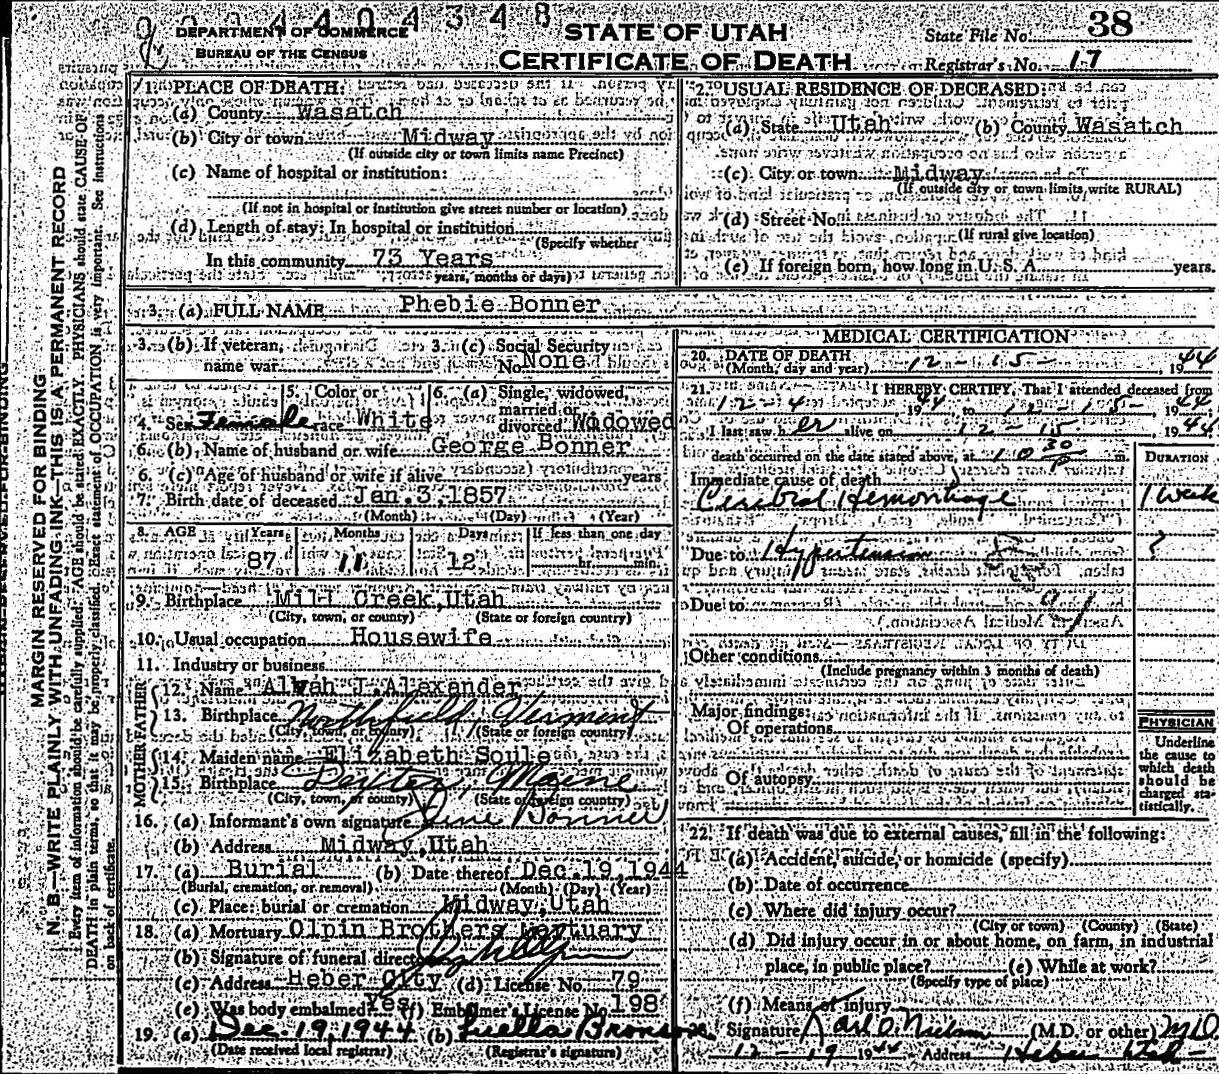 4404348
DEPARTMENT OF COMMERCE
BUREAU OF THE CENSUS
STATE OF UTAH
CERTIFICATE OF DEATH
State File No. 38
Registrar's No. 17
MARGIN RESERVED FOR BINDING
N. B.—WRITE PLAINLY WITH UNFADING INK—THIS IS A PERMANENT RECORD
Every item of information should be carefully supplied. AGE should be stated EXACTLY. PHYSICIANS should state CAUSE OF
DEATH in plain terms, so that it may be properly classified. Exact statement of OCCUPATION is very important. See instructions
on back of certificate.
1. PLACE OF DEATH:
(a) County Wasatch
(b) City or town Midway
(If outside city or town limits name Precinct)
(c) Name of hospital or institution:
(If not in hospital or institution give street number or location)
(d) Length of stay: In hospital or institution
(Specify whether
In this community 73 Years
years, months or days)
2. USUAL RESIDENCE OF DECEASED:
(a) State Utah (b) County Wasatch
(c) City or town Midway
(If outside city or town limits, write RURAL)
(d) Street No.
(If rural give location)
(e) If foreign born, how long in U. S. A. years.
3. (a) FULL NAME Phebie Bonner
3. (b) If veteran, name war
3. (c) Social Security No. None
4. Sex Female
5. Color or race White
6. (a) Single, widowed, married or divorced Widowed
6. (b) Name of husband or wife George Bonner
6. (c) Age of husband or wife if alive years
7. Birth date of deceased Jan. 3, 1857
(Month) (Day) (Year)
8. AGE Years Months Days If less than one day
87 11 12 hr. min.
9. Birthplace Mill Creek, Utah
(City, town, or county) (State or foreign country)
10. Usual occupation Housewife
11. Industry or business
FATHER
12. Name Alvah J. Alexander
13. Birthplace Northfield, Vermont
(City, town, or county) (State or foreign country)
MOTHER
14. Maiden name Elizabeth Soule
15. Birthplace Dexter, Maine
(City, town, or county) (State or foreign country)
16. (a) Informant's own signature Bonner
(b) Address Midway, Utah
17. (a) Burial (b) Date thereof Dec. 19, 1944
(Burial, cremation, or removal) (Month) (Day) (Year)
(c) Place: burial or cremation Midway, Utah
18. (a) Mortuary Olpin Brothers Mortuary
(b) Signature of funeral director
(c) Address Heber City (d) License No. 79
(e) Was body embalmed? Yes (f) Embalmer's License No. 198
19. (a) Dec. 19, 1944 (b) Luella Bronson
(Date received local registrar) (Registrar's signature)
MEDICAL CERTIFICATION
20. DATE OF DEATH
(Month, day and year) 12-15-, 1944
21. I HEREBY CERTIFY, That I attended deceased from
12-4 1944 to 12-15-, 1944;
I last saw her alive on 12-15, 1944
death occurred on the date stated above, at 10 30 P m.
DURATION
Immediate cause of death
Cerebral Hemorrhage 1 week
Due to Hypertension ?
Due to
Other conditions
(Include pregnancy within 3 months of death)
Major findings:
Of operations
Of autopsy
PHYSICIAN
Underline
the cause to
which death
should be
charged sta-
tistically.
22. If death was due to external causes, fill in the following:
(a) Accident, suicide, or homicide (specify)
(b) Date of occurrence
(c) Where did injury occur?
(City or town) (County) (State)
(d) Did injury occur in or about home, on farm, in industrial
place, in public place? (e) While at work?
(Specify type of place)
(f) Means of injury
Signature Karl O. Nielson (M.D. or other) M.D.
12-19 1944 Address Heber Utah